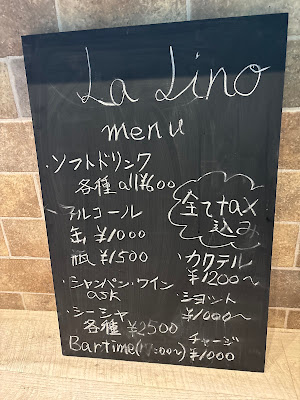 La Lino
menu
・ソフトドリンク
各種 all¥600
全てtax
込み
アルコール
缶 ¥1000
瓶 ¥1500
・カクテル
¥1200〜
・シャンパン・ワイン
ask
・ショット
¥1000〜
・シーシャ
各種 ¥2500
Bartime(17:00〜)
チャージ
¥1000